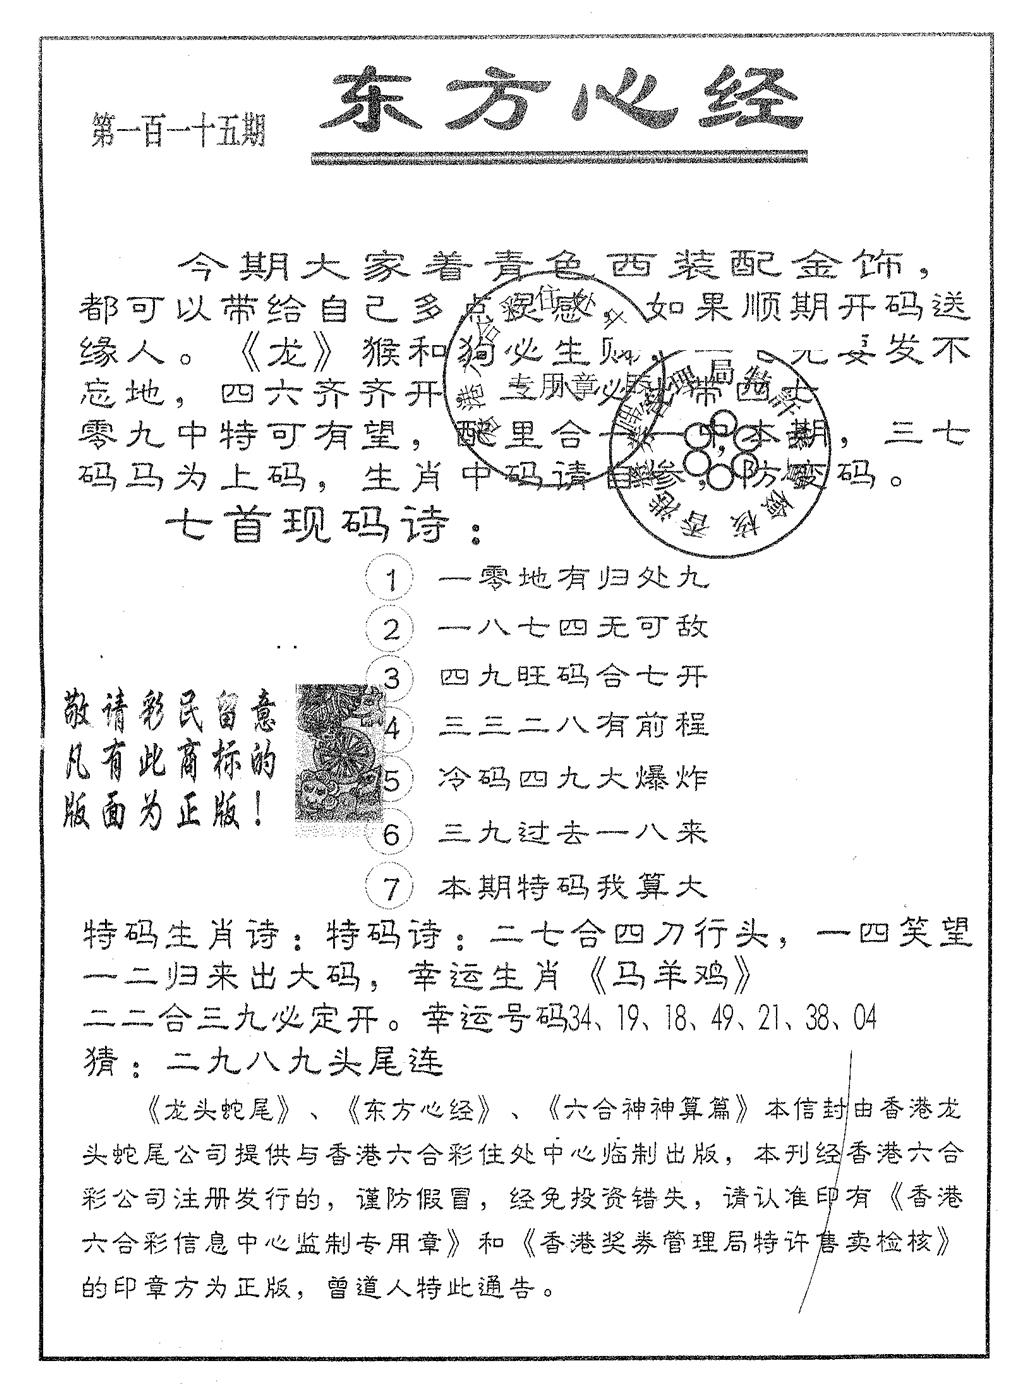 东方心经
第一百一十五期
今期大家着青色西装配金饰，
都可以带给自己多点灵感。如果顺期开码送
缘人。《龙》猴和狗必生财，一 无要发不
忘地，四六齐齐开 必 带四七
零九中特可有望，配里合一 中本期，三七
码马为上码，生肖中码请自参，防变码。
专用章
七首现码诗：
1 一零地有归处九
2 一八七四无可敌
3 四九旺码合七开
4 三三二八有前程
5 冷码四九大爆炸
6 三九过去一八来
7 本期特码我算大
敬请彩民留意
凡有此商标的
版面为正版！
特码生肖诗：特码诗：二七合四刀行头，一四笑望
一二归来出大码，幸运生肖《马羊鸡》
二二合三九必定开。幸运号码34、19、18、49、21、38、04
猜：二九八九头尾连
《龙头蛇尾》、《东方心经》、《六合神神算篇》本信封由香港龙
头蛇尾公司提供与香港六合彩住处中心临制出版，本刊经香港六合
彩公司注册发行的，谨防假冒，经免投资错失，请认准印有《香港
六合彩信息中心监制专用章》和《香港奖券管理局特许售卖检核》
的印章方为正版，曾道人特此通告。